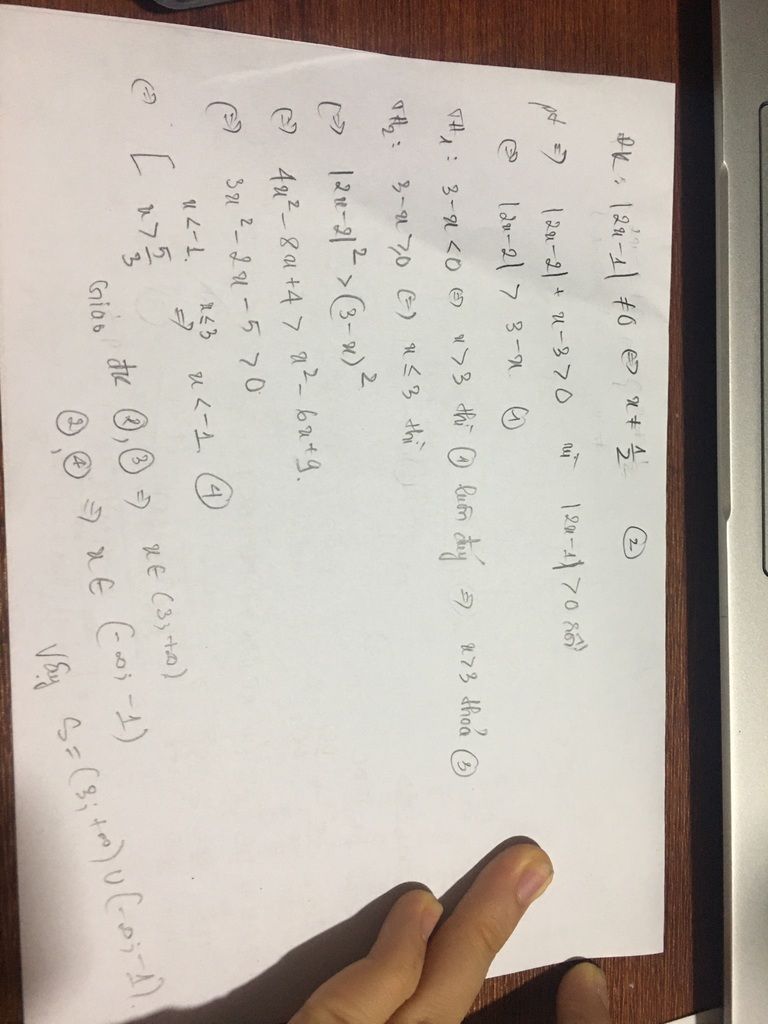 ĐK: |2x-1| ≠ 0 ⇔ x ≠ 1/2 ②
pt ⇒ |2x-2| + x-3 > 0 vì |2x-1| > 0 rồi
⇔ |2x-2| > 3-x ①
TH₁: 3-x < 0 ⇔ x > 3 thì ① luôn đúng ⇒ x > 3 thoả ③
TH₂: 3-x ≥ 0 ⇔ x ≤ 3 thì
⇔ |2x-2|² > (3-x)²
⇔ 4x² - 8x + 4 > x² - 6x + 9.
⇔ 3x² - 2x - 5 > 0
⇔ [ x < -1. x > 5/3 x ≤ 3 ⇒ x < -1 ④
Giao đk ②, ③ ⇒ x ∈ (3; +∞)
②, ④ ⇒ x ∈ (-∞; -1)
Vậy S = (3; +∞) ∪ (-∞; -1).